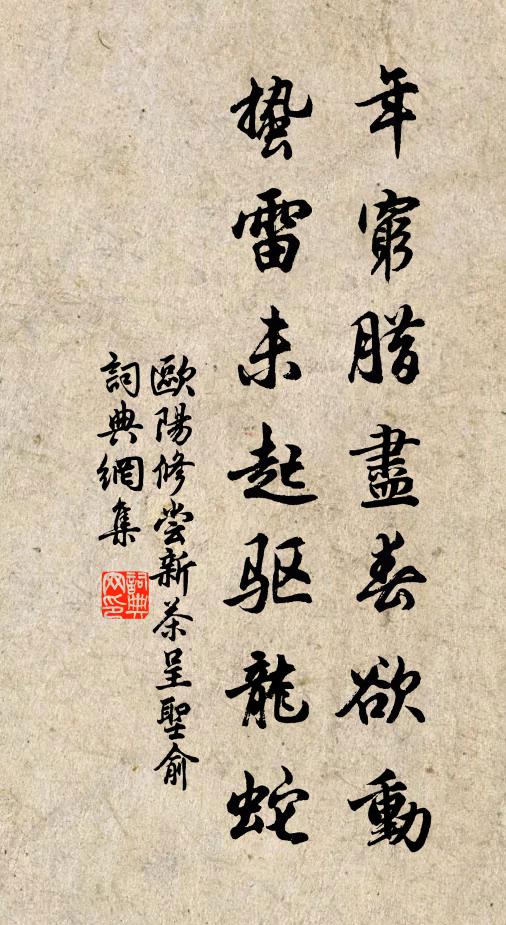 年窮腊盡春欲動
蟄雷未起驅龍蛇
歐陽修嘗新茶呈聖俞
詞典網集
詞典网印